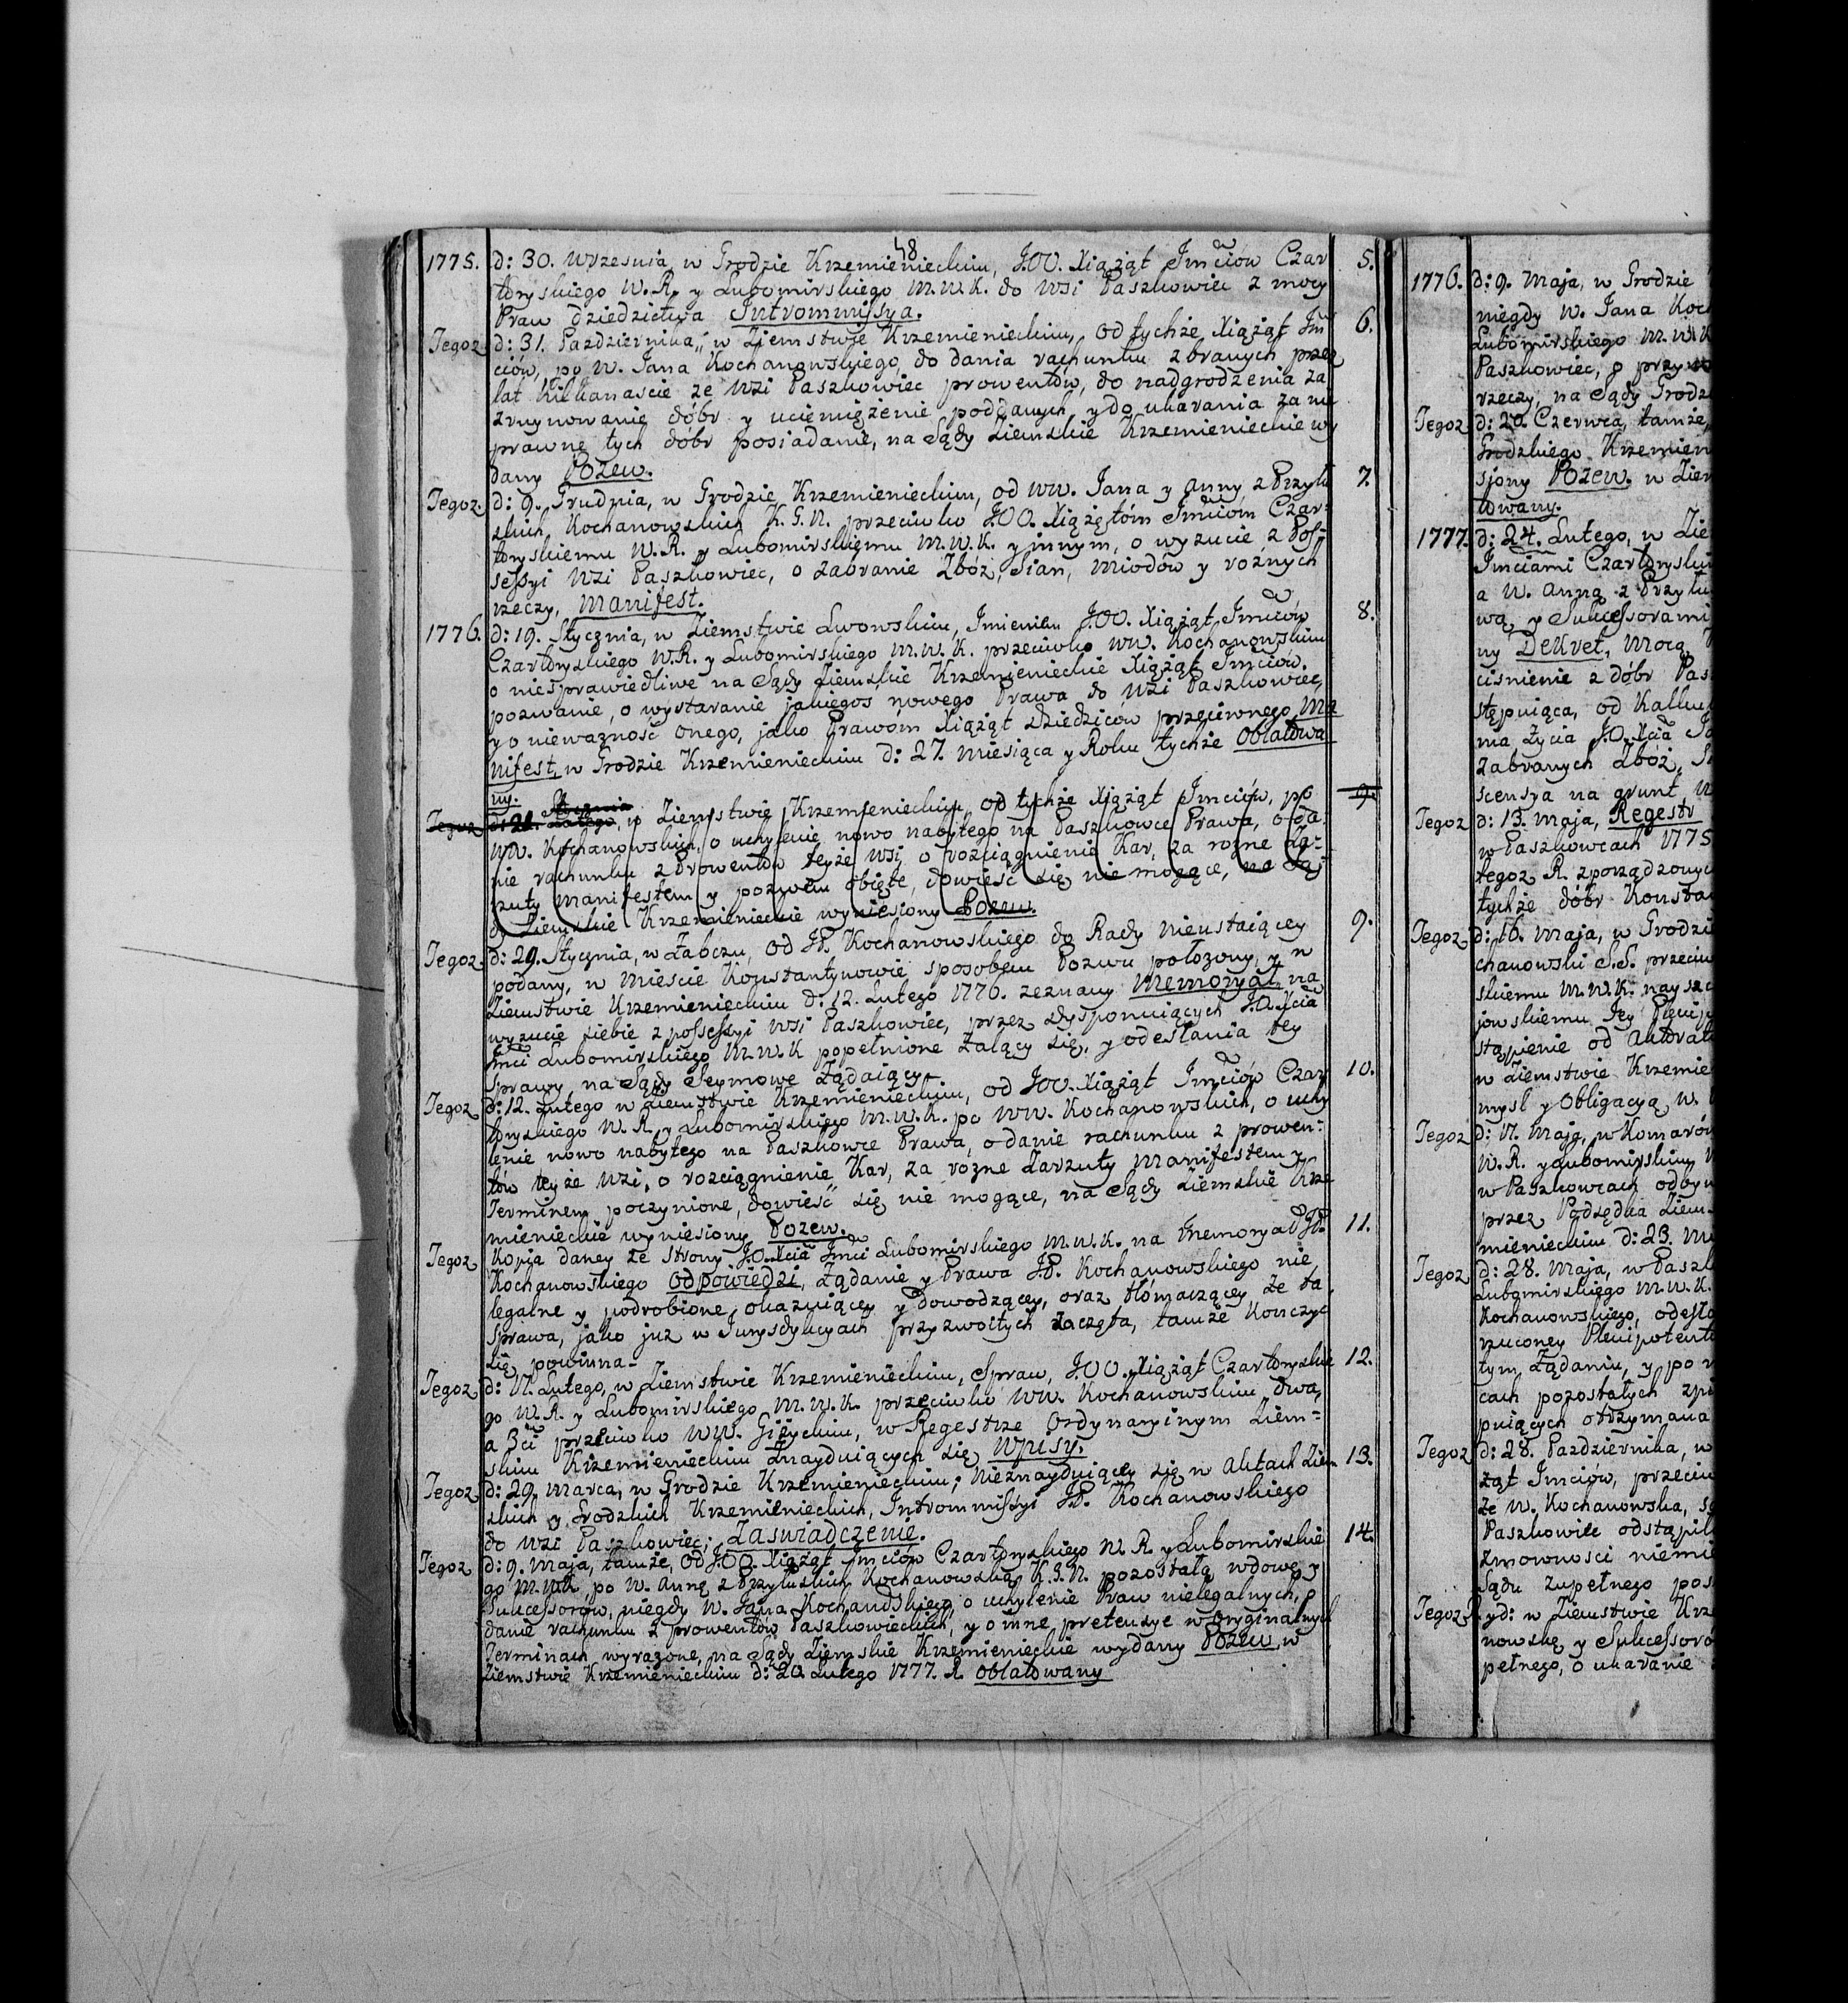 48
1775. d: 30. Wrzesnia, w Grodzie Krzemienieckim, J.OO. Xiążąt Jmciów Czar 5.
toryskiego W.R. y Lubomirskiego M.W.K. do Wsi Paszkowiec z mocy
Praw dziedzictwa Intromissya.
Tegoż d: 31. Pazdziernika, w Ziemstwie Krzemienieckim, od tychże Xiążąt Jm 6.
ciów, po W. Jana Kochanowskiego, do dania rachunku zbranych przez
lat kilkanascie ze Wsi Paszkowiec prowentów, do nadgrodzenia za
zruynowanie dóbr y uciemiężenie poddanych, y do ukarania za nie
prawne tych dóbr posiadanie, na Sądy Ziemskie Krzemienieckie wy
dany Pozew.
Tegoż. d: 9. Grudnia, w Grodzie Krzemienieckim, od WW. Jana y Anny z Przyłu 7.
skich Kochanowskich K.G.N. przeciwko J.OO. Xiążętóm Jmciom Czar=
toryskiemu W.R. y Lubomirskiemu M.W.K. y innym, o wyzucie z Pos=
sessyi Wsi Paszkowiec, o zabranie Zbóż, Sian, Miodów y rożnych
rzeczy, Manifest.
1776. d: 19. Stycznia, w Ziemstwie Lwowskim, Imieniem J.OO. Xiążąt Jmciów 8.
Czartoryskiego W.R. y Lubomirskiego M.W.K. przeciwko WW. Kochanowskim
o niesprawiedliwe na Sądy Ziemskie Krzemienieckie Xiążąt Jmciów
pozwanie, o wystaranie jakiegos nowego Prawa do Wsi Paszkowiec,
y o nieważność onego, jako Prawóm Xiążąt Dziedziców przeciwnego, Ma
nifest, w Grodzie Krzemienieckim d: 27. Miesiąca y Roku tychże Oblatowa
ny.
Stycznia
Tegoż d: 21. Lutego, w Ziemstwie Krzemienieckim, od tychże Xiążąt Jmciów, po 9.
WW. Kochanowskich, o uchylenie nowo nabytego na Paszkowce Prawa, o da
nie rachunku z Prowentów teyże Wsi, o rozciągnienie Kar, za rożne Za=
rzuty Manifestem y pozwem obięte, dowieść się nie mogące, na Są
dy Ziemskie Krzemienieckie wyniesiony Pozew.
Tegoż. d: 29. Stycznia, w Łabczu, od JP. Kochanowskiego do Rady Nieustaiącey 9.
podany, w Mieście Konstantynowie sposobem Pozwu położony, y w
Ziemstwie Krzemienieckim d: 12. Lutego 1776. zeznany Memoryał na
wyzucie siebie z possessyi Wsi Paszkowiec, przez dysponuiących J.O. Xcia
Jmci Lubomirskiego M.W.K popełnione żalący się, y odesłania tey
Sprawy na Sądy Seymowe żądaiący.
Tegoż d: 12. Lutego w Ziemstwie Krzemienieckim, od J.OO. Xiążąt Jmciów Czar 10.
toryskiego W.R. y Lubomirskiego M.W.K. po WW. Kochanowskich, o uchy
lenie nowo nabytego na Paszkowce Prawa, o danie rachunku z prowen=
tów teyże Wsi, o rozciągnienie Kar, za rożne Zarzuty Manifestem y
Terminem poczynione, dowieść się nie mogące, na Sądy Ziemskie Krze
mienieckie wyniesiony Pozew.
Tegoż Kopja daney ze strony J.O. Xcia Jmci Lubomirskiego M.W.K. na Memoryał JP. 11.
Kochanowskiego Odpowiedzi, Żądanie y Prawa JP. Kochanowskiego nie
legalne y podrobione, okazuiącey y dowodzącey, oraz tłómaczącey, że ta
Sprawa, jako już w Jurysdykcyach przyzwoitych zaczęta, tamże kończyc
się powinna.
Tegoż d: 17. Lutego, w Ziemstwie Krzemienieckim, Spraw, J.OO. Xiążąt Czartoryskie 12.
go W.R. y Lubomirskiego M.W.K. przeciwko WW. Kochanowskim dwa,
a 3ci przeciwko WW. Giżyckim, w Regestrze Ordynaryinym Ziem=
skim Krzemienieckim Znayduiących się Wpisy.
Tegoż d: 29. Marca, w Grodzie Krzemienieckim, Nieznayduiącey się w Aktach Ziem 13.
skich y Grodzkich Krzemienieckich, Intromissyi JP. Kochanowskiego
do Wsi Paszkowiec, Zaswiadczenie.
Tegoż d: 9. Maja, tamże, od J.OO. Xiążąt Jmciów Czartoryskiego W.R. y Lubomirskie 14.
go M.W.K. po W. Annę z Przyłuskich Kochanowską K.G.N. pozostałą wdowę, y
Sukcessorów, niegdy W. Jana Kochanowskiego, o uchylenie Praw nielegalnych, o
danie rachunku z prowentów Paszkowieckich, y o inne pretensye w oryginalnych
Terminach wyrażone, na Sądy Ziemskie Krzemienieckie wydany Pozew, w
Ziemstwie Krzemienieckim d: 20. Lutego 1777. R. Oblatowany
1776. d: 9. Maja, w Grodzie
niegdy W. Jana Koch
Lubomirskiego M.W.K
Paszkowiec, o
rzeczy, na Sądy Grodz
Tegoż d: 20. Czerwca, tamże,
Grodzkiego Krzemien
sjony Pozew. w Zie
towany.
1777. d: 24. Lutego, w Zie
Jmciami Czartoryski
a W. Anną z Przyłu
wą, y Sukcessorami
ny Dekret, Mocą
cisnienie z dóbr Pas
stępuiąca, od
ma życia J.O. Xcia
zabranych Zbóż, S
scensya na grunt
Tegoż d: 13. Maja, Regestr
w Paszkowcach 1775
tegoż R. zporządzonych
tychże dóbr Konsta
Tegoż d: 16. Maja, w Grodzi
chanowski S.S. przeciw
skiemu M.W.K. naysz
jowskiemu Jey
stąpienie od
w Ziemstwie Krzemie
mysl y Obligacyą W.
Tegoż d: 17. Maja, w Komarów
W.R. y Lubomirskim
w Paszkowcach odby
przez Podsędka Ziem
mienieckim d: 23.
Tegoż d: 28. Maja, w Paszk
Lubomirskiego M.W.K.
Kochanowskiego, odesła
rzuconey Plenipotent
tym Żądaniu, y po
cach pozostałych
puiących otrzymana
Tegoż d: 28. Pazdziernika, w
żąt Jmciów, przeciw
że W. Kochanowska,
Paszkowiec odstąpił
zmownosci niemie
Sądu zupełnego pos
Tegoż R. y d: w Ziemstwie Krze
nowską y Sukcessoró
pełnego, o ukaranie